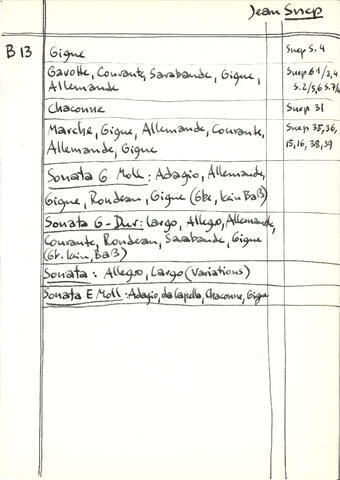 Jean Snep
B 13 Gigue Snep S. 4
Gavotte, Courante, Sarabande, Gigue, Snep 61/3,4
Allemande S.2/5,6 S.7/
Chaconne Snep 31
Marche, Gigue, Allemande, Courante, Snep 35,36,
Allemande, Gigue 15,16,38,39
Sonata G Moll: Adagio, Allemande,
Gigue, Rondeau, Gigue (Gbc, kein Baß)
Sonata G-Dur: Largo, Allegro, Allemande,
Courante, Rondeau, Sarabande, Gigue
(Gb. kein, Baß)
Sonata: Allegro, Largo (Variations)
Sonata E Moll: Adagio, da Capella, Chaconne, Gigue